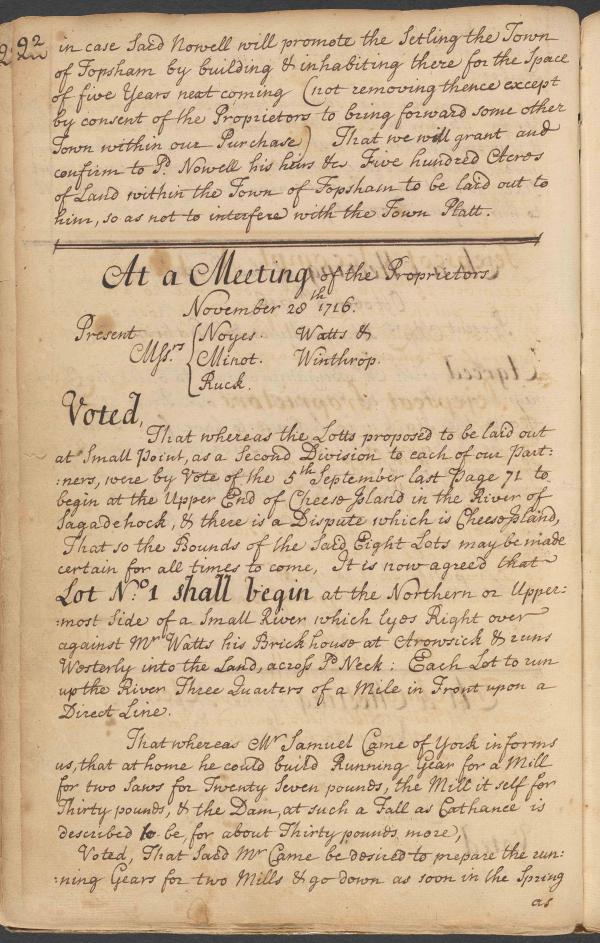 92
in case Said Nowell will promote the Setling the Town
of Topsham by building & inhabiting there for the Space
of five Years next coming (not removing thence except
by consent of the Proprietors to bring forward some other
Town within our Purchase) That we will grant and
confirm to Pd. Nowell his heirs &c Five hundred Acres
of Land within the Town of Topsham to be laid out to
him, so as not to interfere with the Town Platt.
At a Meeting of the Proprietors
November 28th 1716.
Present
Messrs
Noyes. Watts &
Minot. Winthrop.
Ruck.
Voted,
That whereas the Lotts proposed to be laid out
at Small Point, as a Second Division to each of our Part:
:ners, were by Vote of the 5th September last Page 71 to
begin at the Upper End of Cheese Island in the River of
Sagadehock, & there is a Dispute which is Cheese Island,
That so the Bounds of the Said Eight Lots may be made
certain for all times to come, It is now agreed that
Lot No. 1 shall begin at the Northern or Upper:
:most Side of a Small River which lyes Right over
against Mr Watts his Brick house at Arowsick & runs
Westerly into the Land, across Pd Neck: Each Lot to run
up the River Three Quarters of a Mile in Front upon a
Direct Line.
That whereas Mr Samuel Came of York informs
us, that at home he could build Running Gear for a Mill
for two Saws for Twenty Seven pounds, the Mill it self for
Thirty pounds, & the Dam, at such a Fall as Cathance is
described to be, for about Thirty pounds more,
Voted, That Said Mr Came be desired to prepare the run:
:ning Gears for two Mills & go down as soon in the Spring
as